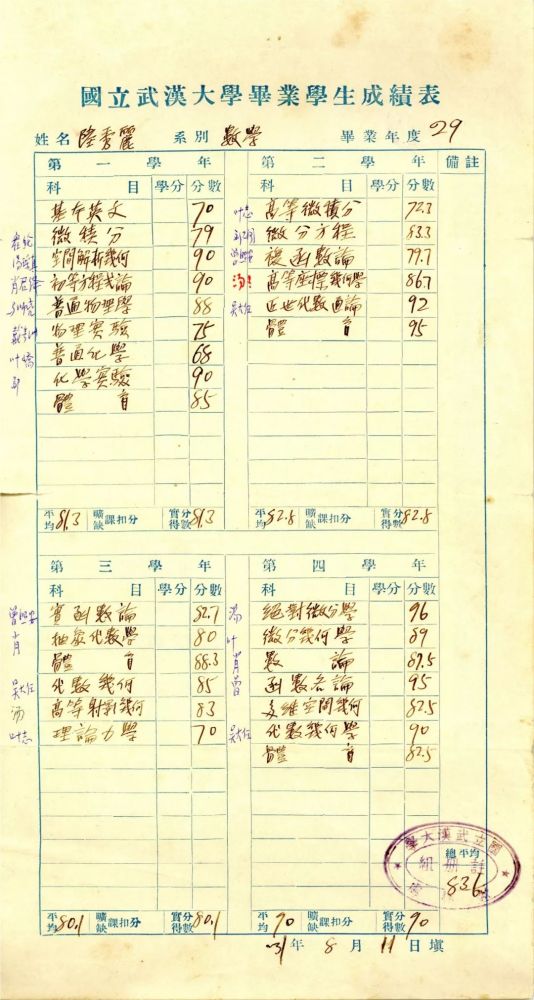 國立武漢大學畢業學生成績表
姓名 陸秀麗 系別 數學 畢業年度 29
第一學年 第二學年 備註
科目 學分 分數 科目 學分 分數
基本英文 70 叶志 高等微積分 72.3
微積分 79 微分方程 83.3
空間解析幾何 90 復函數論 79.7
初等方程式論 90 湯 高等座標幾何學 86.7
普通物理學 88 吴大任 近世代數通論 92
物理實驗 75 體育 95
叶嶠 普通化學 68
化學實驗 90
體育 85
平均 81.3 曠缺課扣分 實得分數 81.3 平均 82.8 曠缺課扣分 實得分數 82.8
第三學年 第四學年
科目 學分 分數 科目 學分 分數
實函數論 82.7 湯 絕對微分學 96
肖 抽象代數學 80 叶 微分幾何學 89
體育 88.3 肖 數論 87.5
吴大任 代數幾何 85 曾 函數各論 95
汤 高等射影幾何 83 多維空間幾何 82.5
叶志 理論力學 70 吴大任 代數幾何學 90
體育 82.5
國立武漢大學
註册組
總平均
83.6
平均 80.1 曠缺課扣分 實得分數 80.1 平均 90 曠缺課扣分 實得分數 90
31年8月11日填